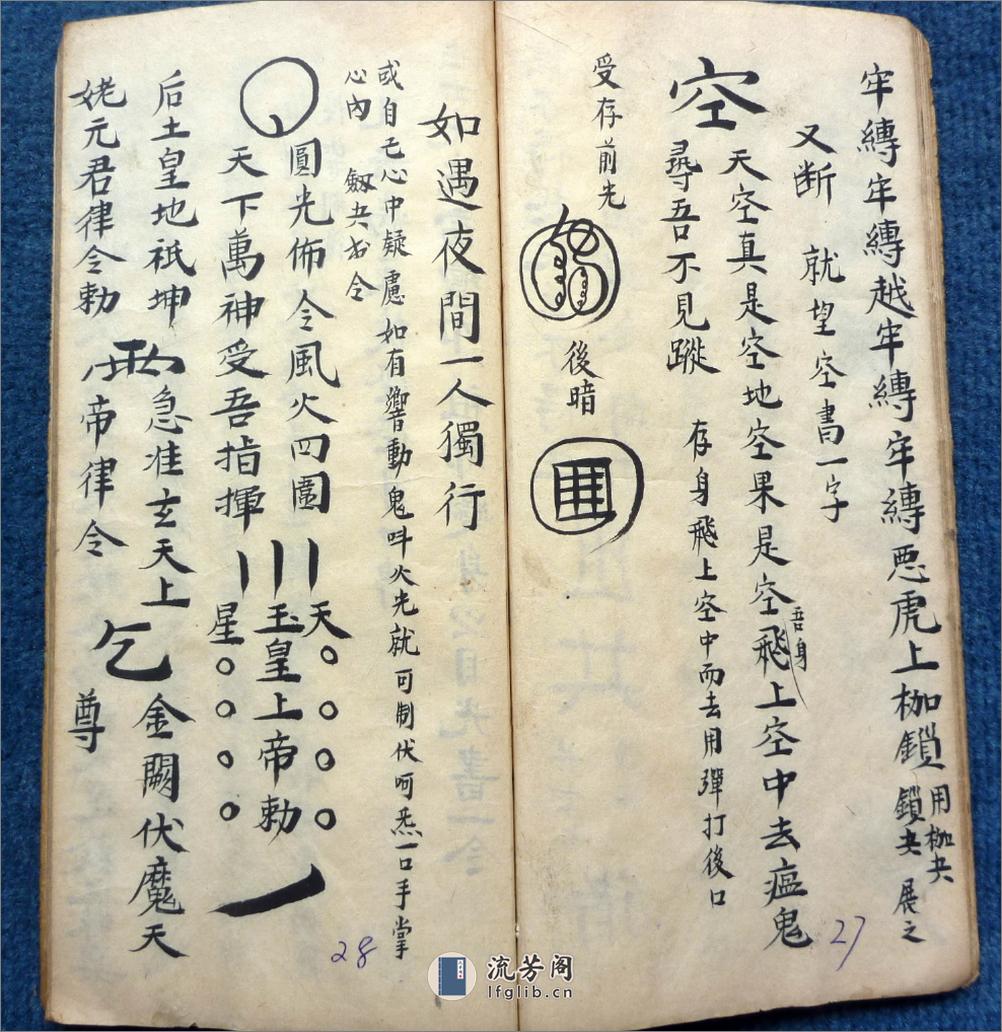 牢縛牢縛越牢縛牢縛悪虎上枷鎖
用枷夬
鎖夬 展之
又断 就望空書一字
空 天空真是空地空果是空飛上空中去瘟鬼
吾身
尋吾不見蹤 存身飛上空中而去用彈打後口
受存前光
後暗
27
如遇夜間一人獨行
或自己心中疑慮如有響動鬼呌火光就可制伏呵炁一口手掌
心內 劔夬書令
圓光佈令風火四圍
天下萬神受吾指揮
天
玉皇上帝勅
星
后土皇地祇坤 急准玄天上 金闕伏魔天
姥元君律令勅 帝律令 尊
28
流芳阁
lfglib.cn